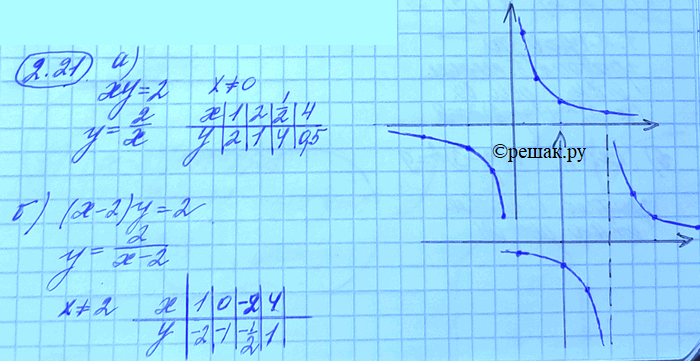 2.21 а)
xy=2 x≠0
y=2/x
x | 1 | 2 | 1/2 | 4
y | 2 | 1 | 4 | 0,5
©решак.ру
б) (x-2)y=2
y=2/(x-2)
x≠2
x | 1 | 0 | -2 | 4
y | -2 | -1 | -1/2 | 1